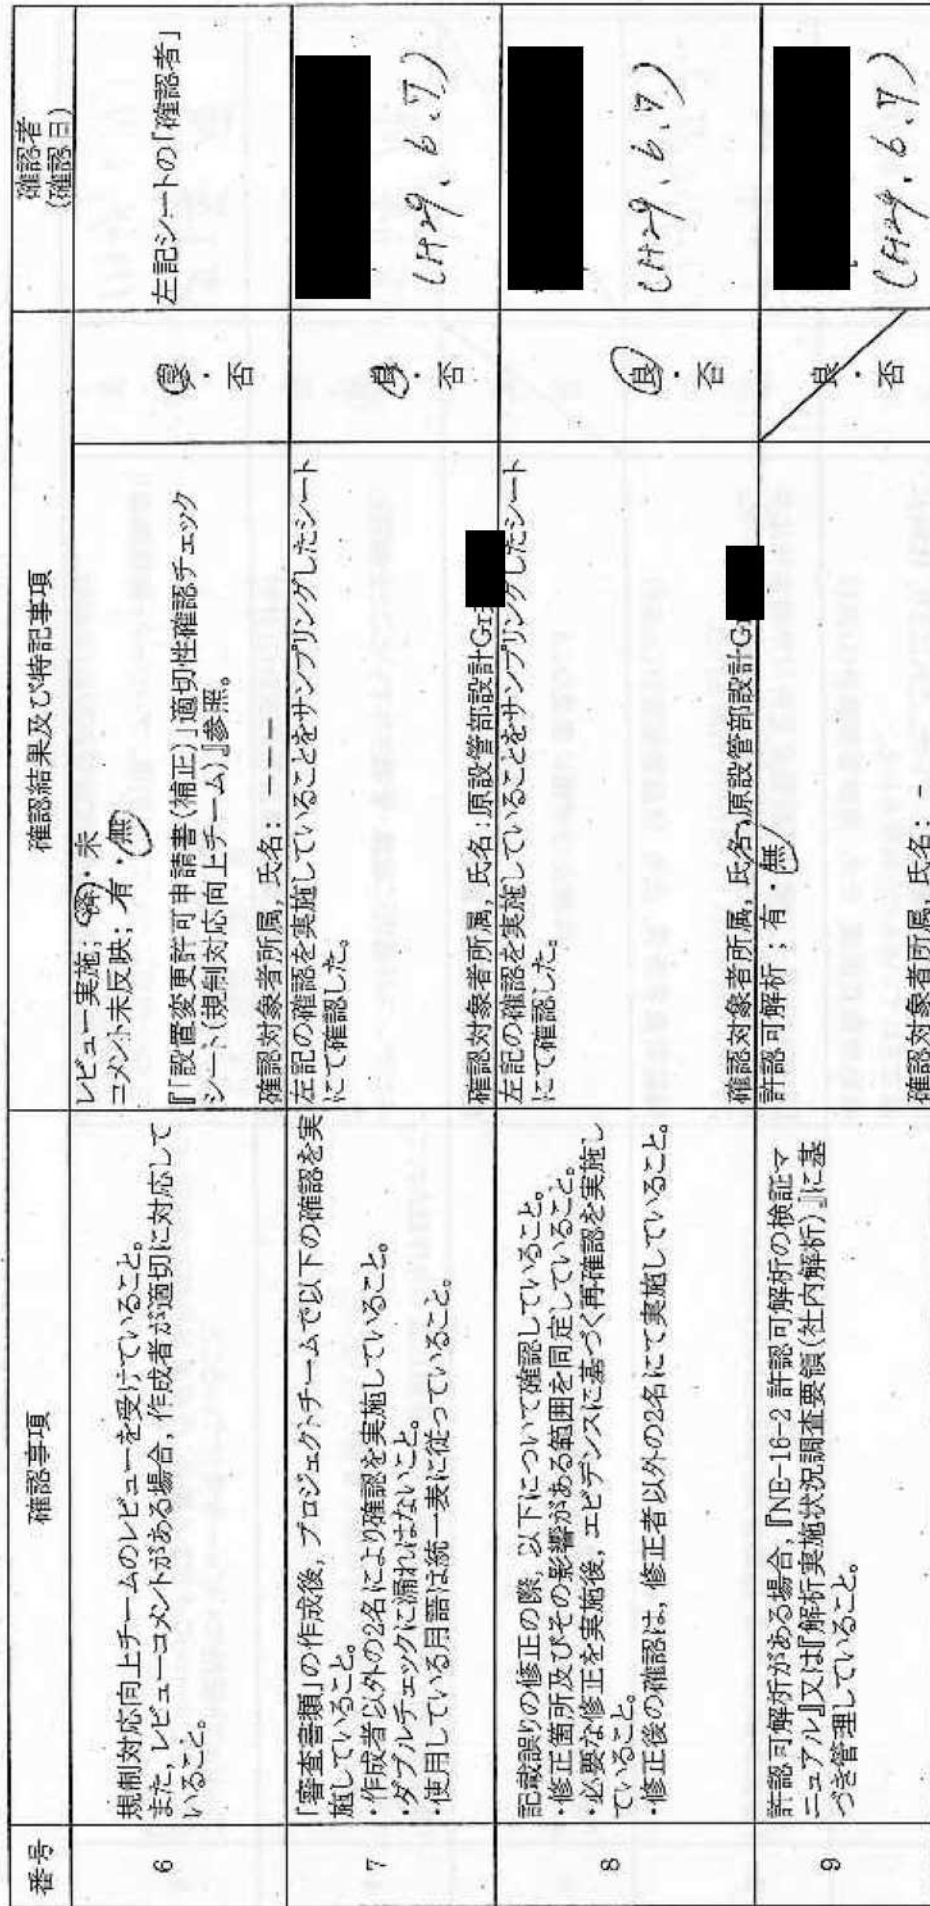 番号
確認事項
確認結果及び特記事項
確認者
(確認日)
6
規制対応向上チームのレビューを受けていること。
また，レビューコメントがある場合，作成者が適切に対応して
いること。
レビュー実施；済・未
コメント未反映；有・無
『「設置変更許可申請書（補正）」適切性確認チェック
シート（規制対応向上チーム）』参照。
確認対象者所属，氏名：－－－
良・否
左記シートの「確認者」
7
「審査書類」の作成後，プロジェクトチームで以下の確認を実
施していること。
・作成者以外の2名により確認を実施していること。
・ダブルチェックに漏れはないこと。
・使用している用語は統一表に従っていること。
左記の確認を実施していることをサンプリングしたシート
にて確認した。
確認対象者所属，氏名：原設管部設計Gr
良・否
(H29.6.17)
8
記載誤りの修正の際，以下について確認していること。
・修正箇所及びその影響がある範囲を同定していること。
・必要な修正を実施後，エビデンスに基づく再確認を実施し
ていること。
・修正後の確認は，修正者以外の2名にて実施していること。
左記の確認を実施していることをサンプリングしたシート
にて確認した。
確認対象者所属，氏名：原設管部設計Gr
良・否
9
許認可解析がある場合，『NE-16-2 許認可解析の検証マ
ニュアル』又は『解析実施状況調査要領（社内解析）』に基
づき管理していること。
許認可解析；有・無
確認対象者所属，氏名：－
良・否